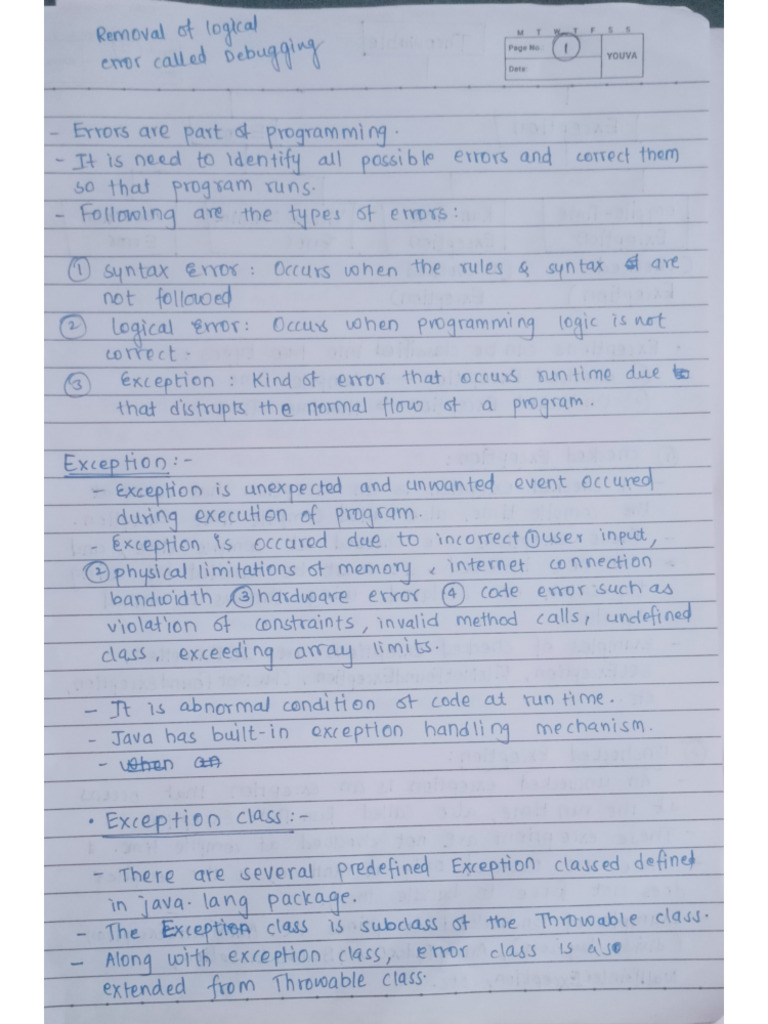 Removal of logical
error called Debugging
M T W T F S S
Page No.: 1
YOUVA
Date:
- Errors are part of programming.
- It is need to identify all possible errors and correct them
so that program runs.
- Following are the types of errors:
① syntax error: Occurs when the rules & syntax are
not followed
② logical error: Occurs when programming logic is not
correct.
③ Exception: Kind of error that occurs runtime due to
that distrupts the normal flow of a program.
Exception:-
- Exception is unexpected and unwanted event occured
during execution of program.
- Exception is occured due to incorrect ① user input,
② physical limitations of memory, internet connection
bandwidth, ③ hardware error ④ code error such as
violation of constraints, invalid method calls, undefined
class, exceeding array limits.
- It is abnormal condition of code at run time.
- Java has built-in exception handling mechanism.
- when an
• Exception class:-
- There are several predefined Exception classed defined
in java.lang package.
- The Exception class is subclass of the Throwable class.
- Along with exception class, error class is also
extended from Throwable class.